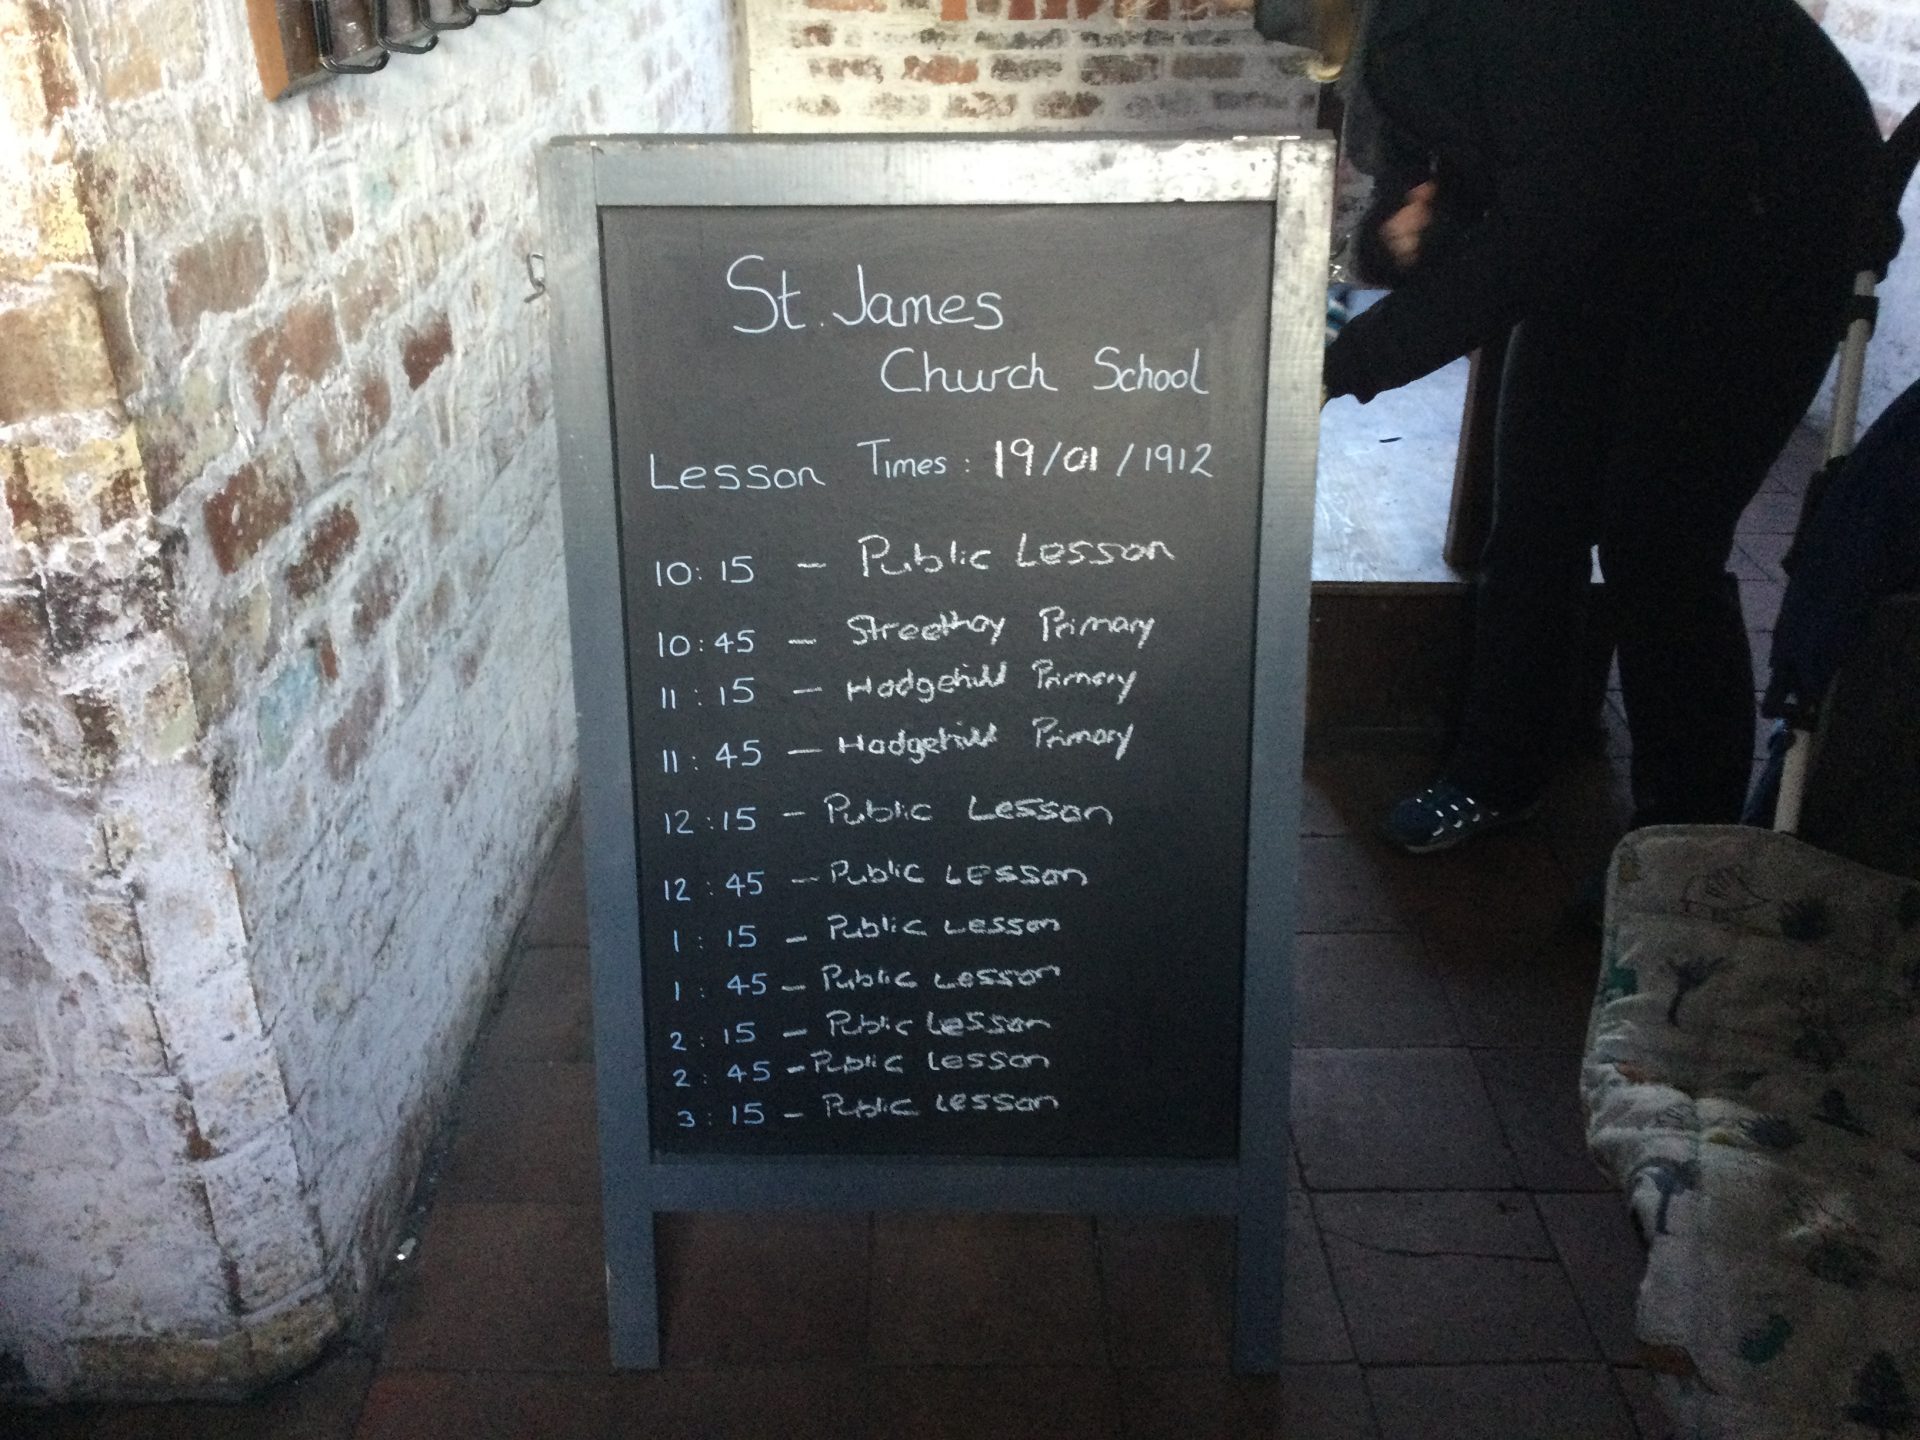 St. James
Church School
Lesson Times: 19/01/1912
10:15 - Public Lesson
10:45 - Streethay Primary
11:15 - Hodgehill Primary
11:45 - Hodgehill Primary
12:15 - Public Lesson
12:45 - Public Lesson
1:15 - Public Lesson
1:45 - Public Lesson
2:15 - Public Lesson
2:45 - Public Lesson
3:15 - Public Lesson